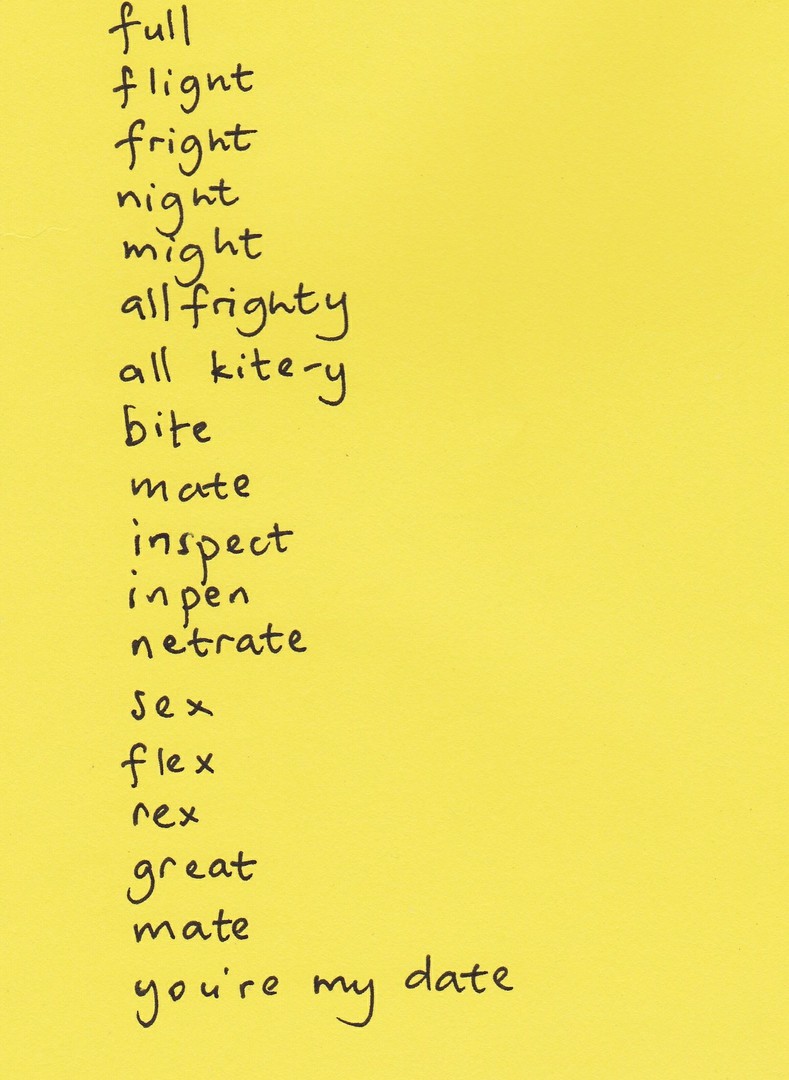 full
flight
fright
night
might
all frighty
all kite-y
bite
mate
inspect
inpen
netrate
sex
flex
rex
great
mate
you're my date